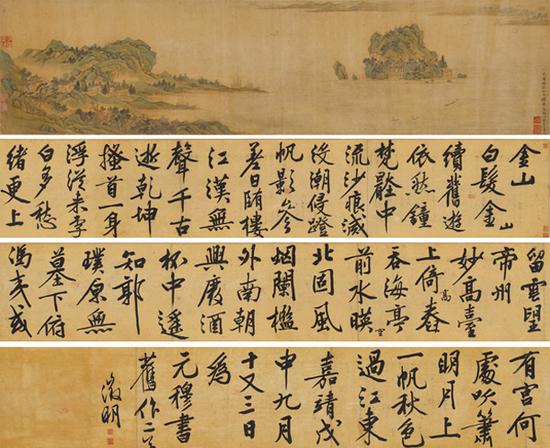 金山
白髮金山
續舊遊
依然鐘
梵殿中
流沙痕滅
沒潮侵磴
帆影參
差日
江漢無
聲千古
逝乾坤
搔首一身
浮從來李
白多愁
緒更上
留雲望
帝州
妙高臺
上倚高春
吞海亭
前水映空
北固風
烟闌檻
外南朝
興廢酒
杯中遙
知郭
璞原無
墓下俯
馮夷或
有宮何
處吹簫
明月上
一帆秋色
過江東
嘉靖戊
申九月
十又三日
為
元穆書
舊作二
徵明